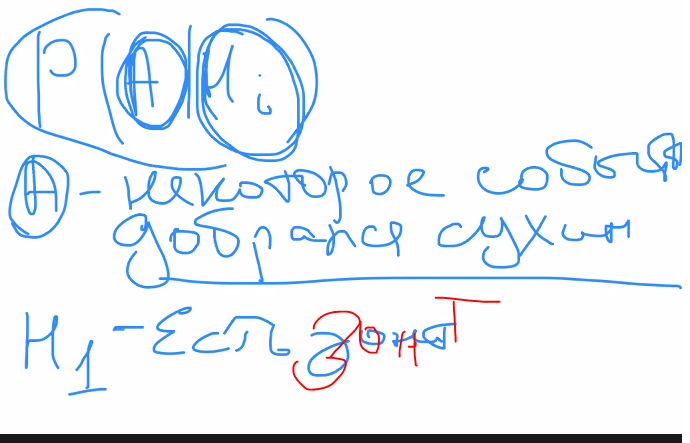 P(A|Hi)
A - некоторое событие
добрался сухим
H1 - Есть зонт